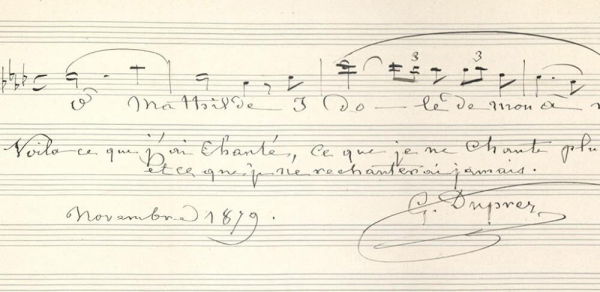 3 3
O Mathilde I do le de mon â
Voilà ce que j'ai Chanté, ce que je ne Chante plu
et ce que je ne rechanterai jamais.
Novembre 1879.
G. Duprez